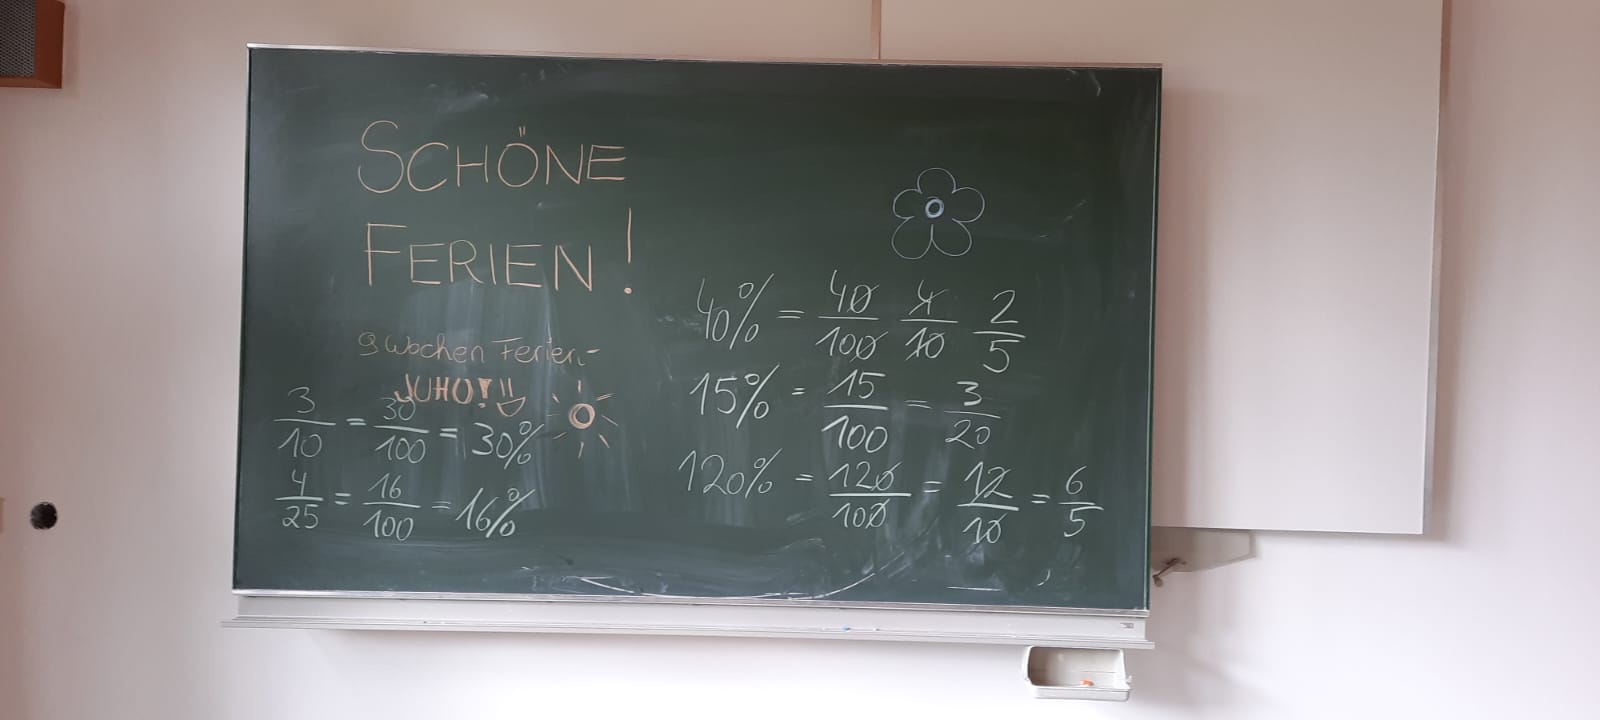 SCHÖNE
FERIEN!
9 Wochen Ferien-
JUHO!!
3/10 = 30/100 = 30%
4/25 = 16/100 = 16%
40% = 40/100 4/10 2/5
15% = 15/100 = 3/20
120% = 120/100 = 12/10 = 6/5